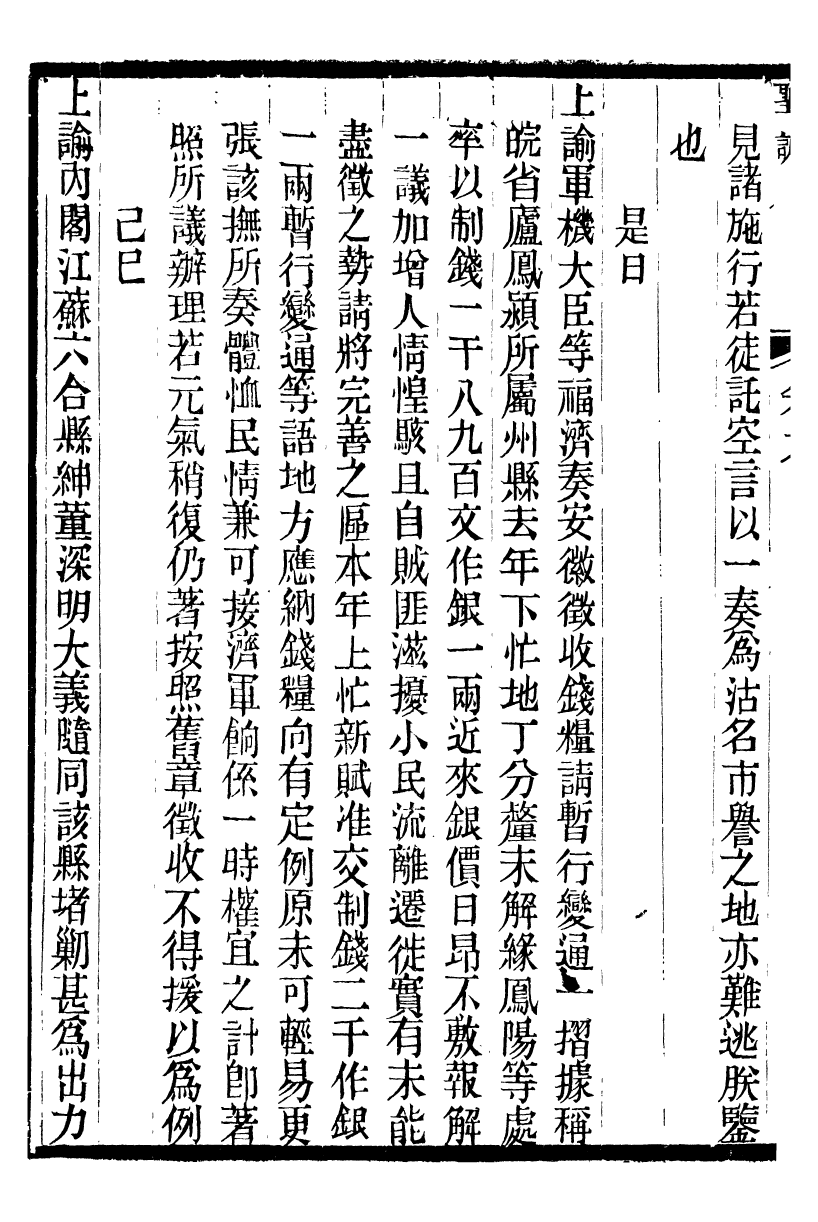 聖訓
見諸施行若徒託空言以一奏爲沽名市譽之地亦難逃朕鑒
也
是日
上諭軍機大臣等福濟奏安徽徵收錢糧請暫行變通一摺據稱
皖省廬鳳潁所屬州縣去年下忙地丁分釐未解緣鳳陽等處
率以制錢一千八九百文作銀一兩近來銀價日昂不敷報解
一議加增人情惶駭且自賊匪滋擾小民流離遷徙實有未能
盡徵之勢請將完善之區本年上忙新賦准交制錢二千作銀
一兩暫行變通等語地方應納錢糧向有定例原未可輕易更
張該撫所奏體恤民情兼可接濟軍餉係一時權宜之計卽著
照所議辦理若元氣稍復仍著按照舊章徵收不得援以爲例
己巳
上諭內閣江蘇六合縣紳董深明大義隨同該縣堵剿甚爲出力